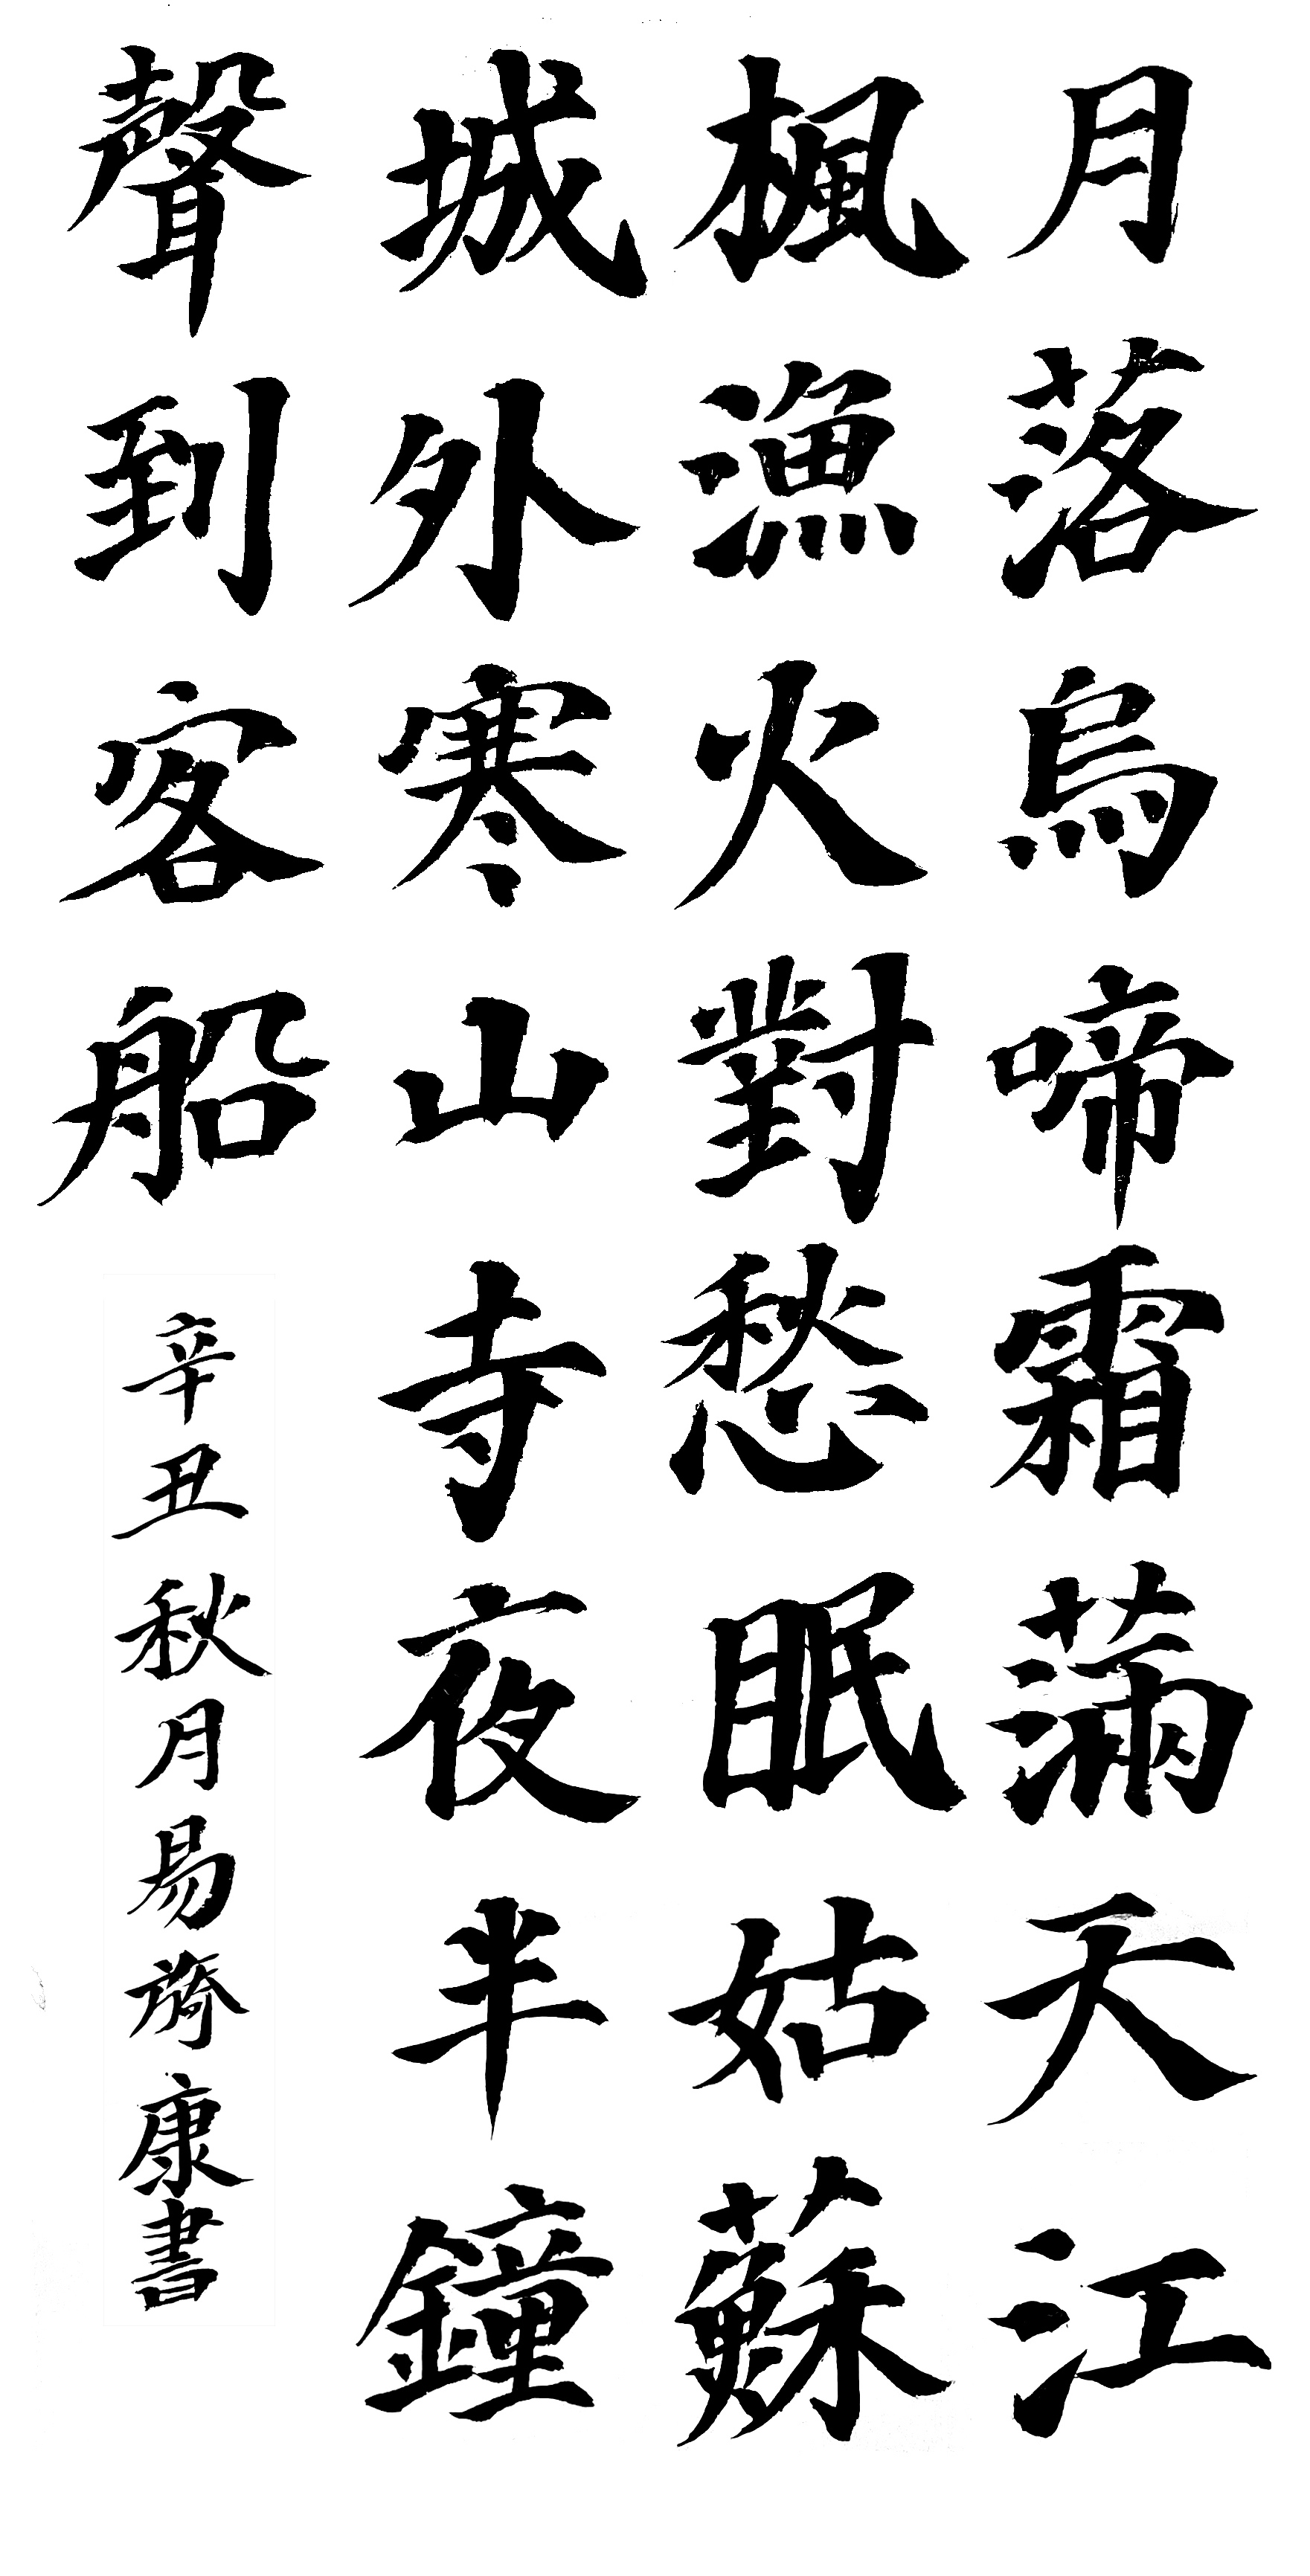 月落烏啼霜滿天江
楓漁火對愁眠姑蘇
城外寒山寺夜半鐘
聲到客船
辛丑秋月易旖康書